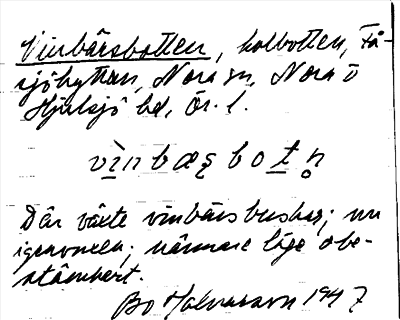 Vinbärsbotten, kolbotten, Få-
sjöhyttan, Nora sn, Nora o
Hjulsjö bd, Ör. l.
vìnbæʂbotn̥
Där växte vinbärsbuskar; nu
igenvuxen; närmare läge obe-
stämbert.
Bo Halvarsson 1947